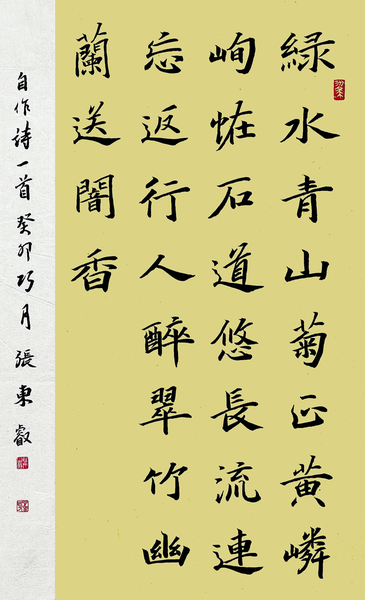 綠水青山菊正黄嶙
峋石道悠長流連
忘返行人醉翠竹幽
蘭送闇香
自作詩一首癸卯巧月張東叡